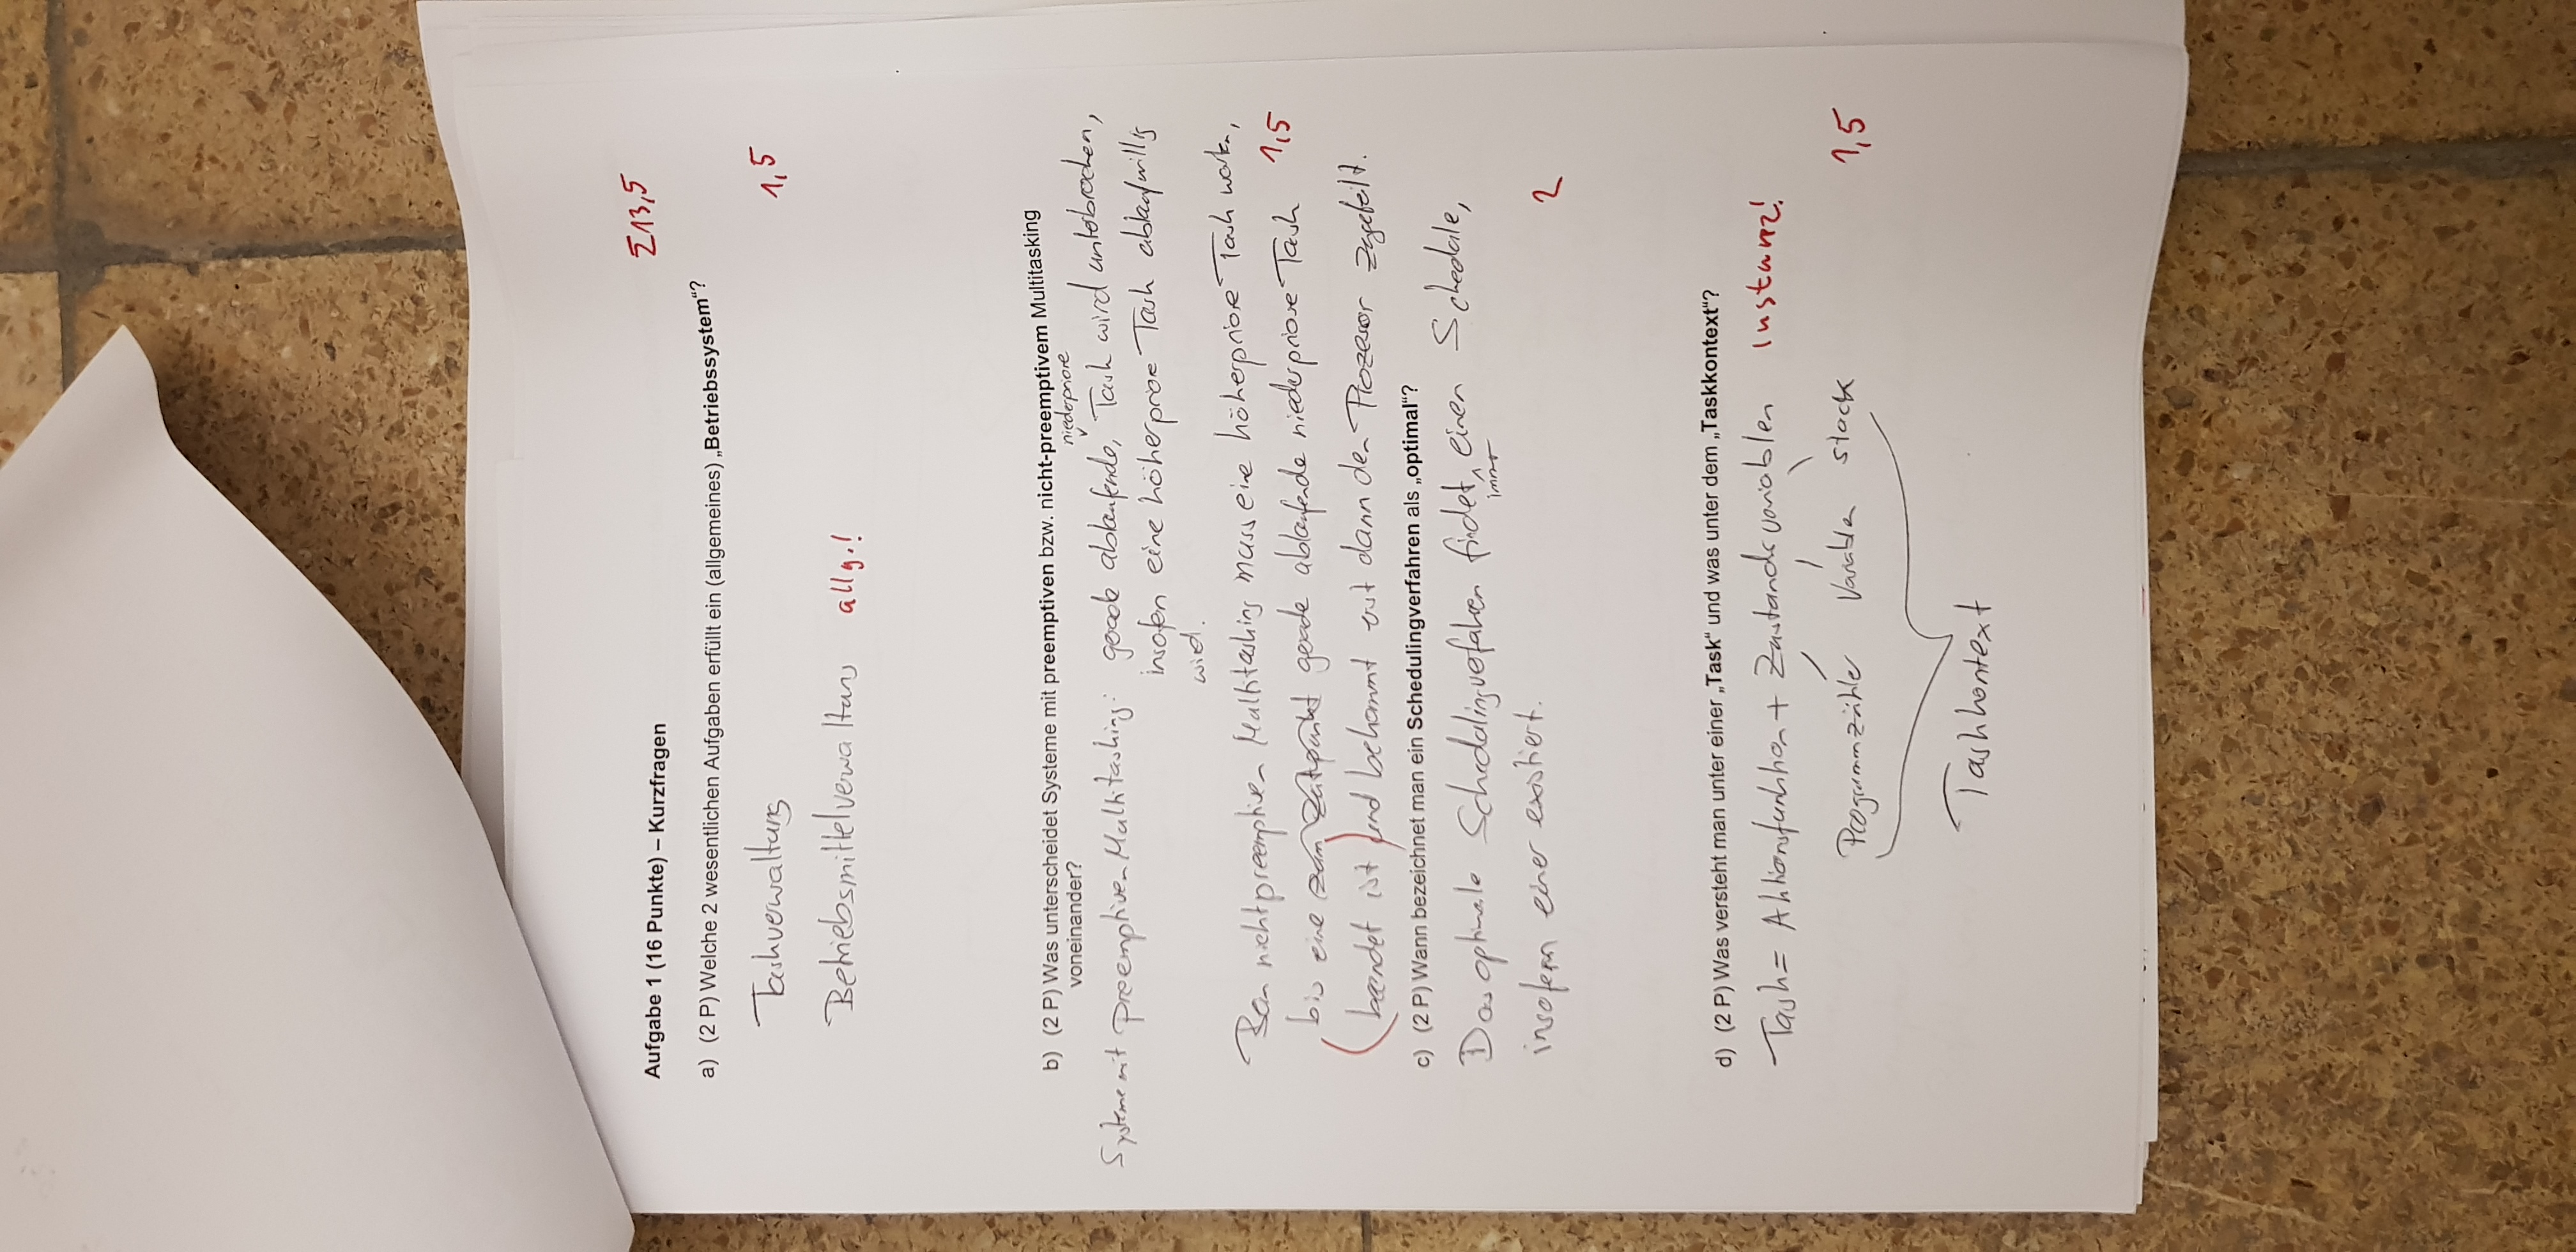 Aufgabe 1 (16 Punkte) – Kurzfragen
Σ13,5
a) (2 P) Welche 2 wesentlichen Aufgaben erfüllt ein (allgemeines) „Betriebssystem“?
Taskverwaltung
1,5
Betriebsmittelverwaltung allg.!
b) (2 P) Was unterscheidet Systeme mit preemptiven bzw. nicht-preemptivem Multitasking
voneinander?
niederpriore
Systeme mit preemptiven Multitasking: gerade ablaufende, Task wird unterbrochen,
insofern eine höherpriore Task ablaufwillig
wird.
nichtpreemptiven Multitasking muss eine höherpriore Task warten,
bis eine zum Zeitpunkt gerade ablaufende niederpriore Task
1,5
(beendet ist) und bekommt erst dann den Prozessor zugeteilt.
c) (2 P) Wann bezeichnet man ein Schedulingverfahren als „optimal“?
Das optimale Schedulingverfahren findet einen Schedule,
immer
insofern einer existiert.
2
d) (2 P) Was versteht man unter einer „Task“ und was unter dem „Taskkontext“?
Task = Aktionsfunktion + Zustandsvariablen Instanz!
Programmzähler Variablen stack
1,5
Taskkontext